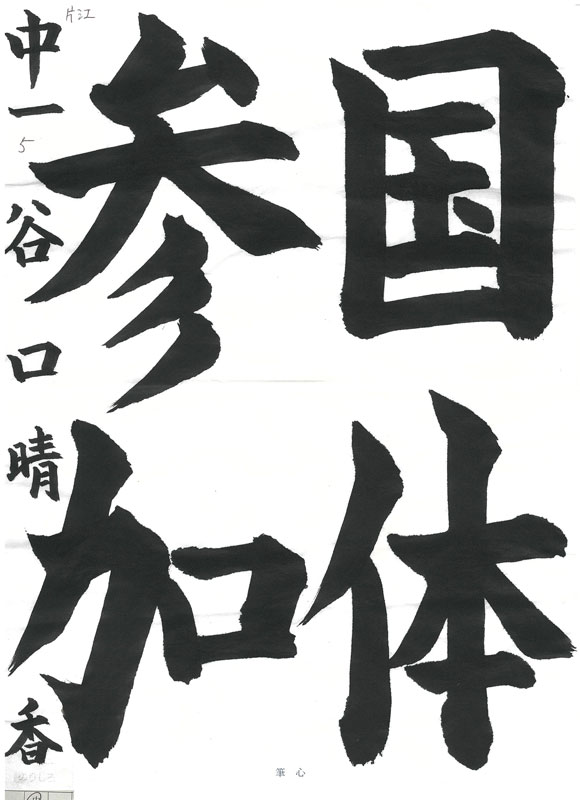 国体
参加
片江
中一 5 谷口晴香
筆心